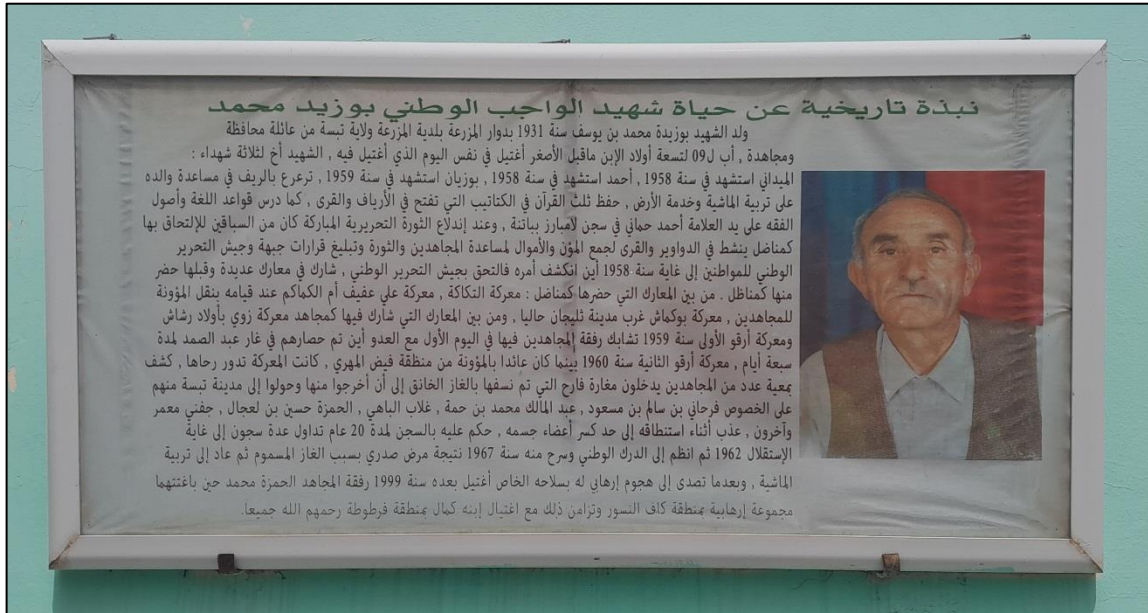 نبذة تاريخية عن حياة شهيد الواجب الوطني بوزيد محمد
ولد الشهيد بوزيدة محمد بن يوسف سنة 1931 بدوار المزرعة بلدية المزرعة ولاية تبسة من عائلة محافظة
ومجاهدة , أب ل09 لتسعة أولاد الإبن ماقبل الأصغر أغتيل في نفس اليوم الذي أغتيل فيه , الشهيد أخ لثلاثة شهداء :
الميداني استشهد في سنة 1958 , أحمد استشهد في سنة 1958 , بوزيان استشهد في سنة 1959 , ترعرع بالريف في مساعدة والده
على تربية الماشية وخدمة الأرض , حفظ ثلث القرآن في الكتاتيب التي تفتح في الأرياف والقرى , كما درس قواعد اللغة وأصول
الفقه على يد العلامة أحمد حماني في سجن لامبارز بباتنة , وعند إندلاع الثورة التحريرية المباركة كان من السباقين للإلتحاق بها
كمناضل ينشط في الدواوير والقرى لجمع المؤن والأموال لمساعدة المجاهدين والثورة وتبليغ قرارات جبهة وجيش التحرير
الوطني للمواطنين إلى غاية سنة 1958 أين انكشف أمره فالتحق بجيش التحرير الوطني , شارك في معارك عديدة وقبلها حضر
منها كمناظل . من بين المعارك التي حضرها كمناضل : معركة التكاكة , معركة علي عفيف أم الكماكم عند قيامه بنقل المؤونة
للمجاهدين , معركة بوكماش غرب مدينة ثليجان حاليا , ومن بين المعارك التي شارك فيها كمجاهد معركة زوي بأولاد رشاش
ومعركة أرقو الأولى سنة 1959 تشابك رفقة المجاهدين فيها في اليوم الأول مع العدو أين تم حصارهم في غار عبد الصمد لمدة
سبعة أيام , معركة أرقو الثانية سنة 1960 بينما كان عائدا بالمؤونة من منطقة فيض المهري , كانت المعركة تدور رحاها , كشف
بمعية عدد من المجاهدين يدخلون مغارة فارح التي تم نسفها بالغاز الخانق إلى أن أخرجوا منها وحولوا إلى مدينة تبسة منهم
على الخصوص فرحاني بن سالم بن مسعود , عبد المالك محمد بن حمة , غلاب الباهي , الحمزة حسين بن لعجال , جفني معمر
وآخرون , عذب أثناء استنطاقه إلى حد كسر أعضاء جسمه , حكم عليه بالسجن لمدة 20 عام تداول عدة سجون إلى غاية
الإستقلال 1962 ثم انظم إلى الدرك الوطني وسرح منه سنة 1967 نتيجة مرض صدري بسبب الغاز المسموم ثم عاد إلى تربية
الماشية , وبعدما تصدى إلى هجوم إرهابي له بسلاحه الخاص أغتيل بعده سنة 1999 رفقة المجاهد الحمزة محمد حين باغتتهما
مجموعة إرهابية بمنطقة كاف النسور وتزامن ذلك مع اغتيال إبنه كمال بمنطقة فرطوطة رحمهم الله جميعا.